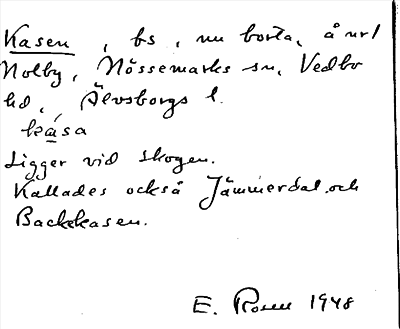 Kasen, bs, nu borta, å nr 1
Nolby, Nössemarks sn, Vedbo
hd, Älvsborgs l.
kasa
Ligger vid skogen.
Kallades också Jämmerdal och
Backkasen.
E. Rosen 1948